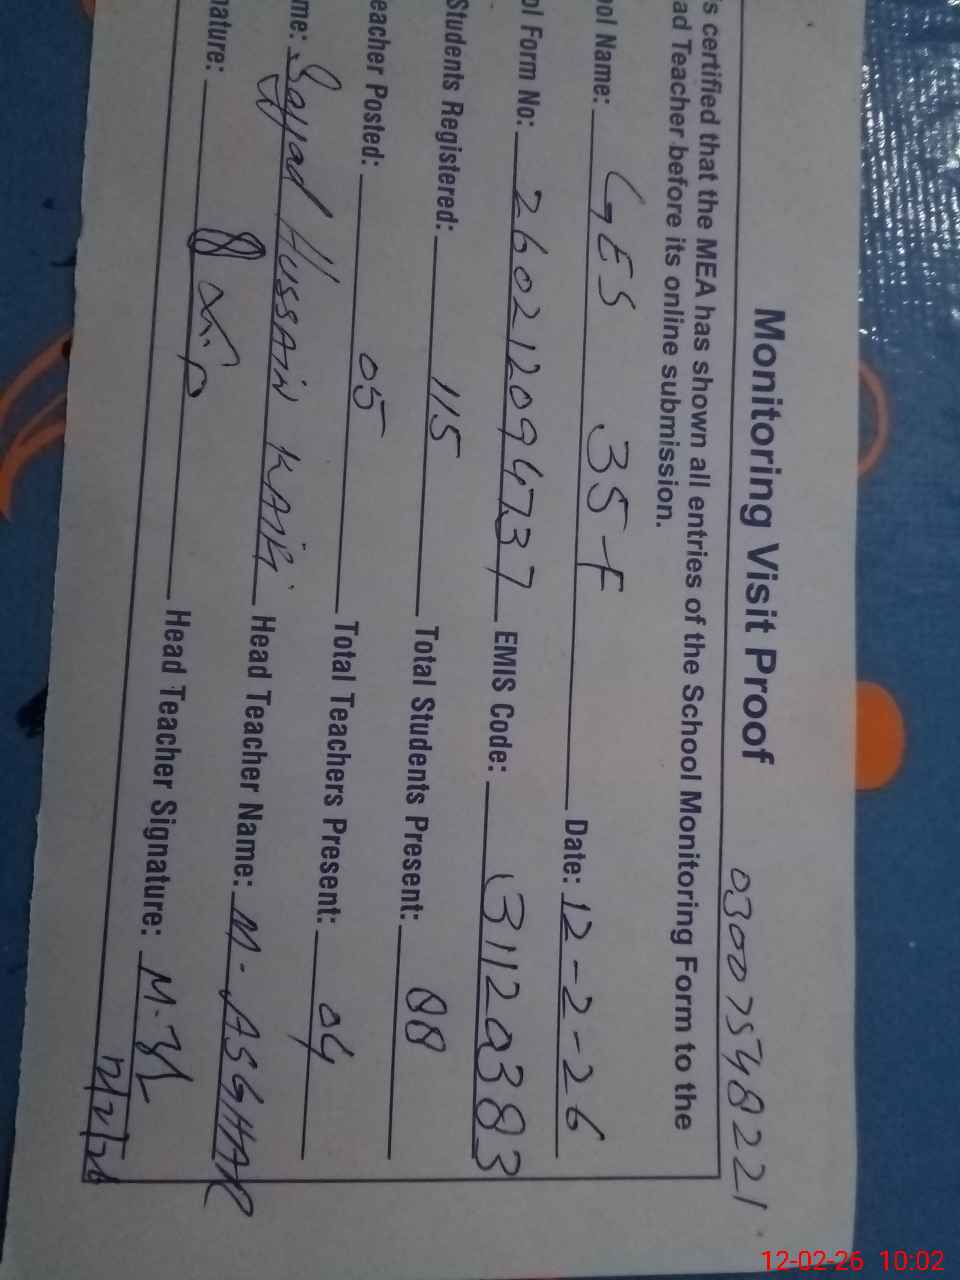 Monitoring Visit Proof 03007548221
is certified that the MEA has shown all entries of the School Monitoring Form to the
ad Teacher before its online submission.
ool Name: GES 35-F Date: 12-2-26
ol Form No: 260212094737 EMIS Code: 31120383
Students Registered: 115 Total Students Present: 88
eacher Posted: 05 Total Teachers Present: 04
me: Sajjad HUSSAIN Head Teacher Name: M. ASGHAR
nature: Head Teacher Signature:
12/2/26
12-02-26 10:02